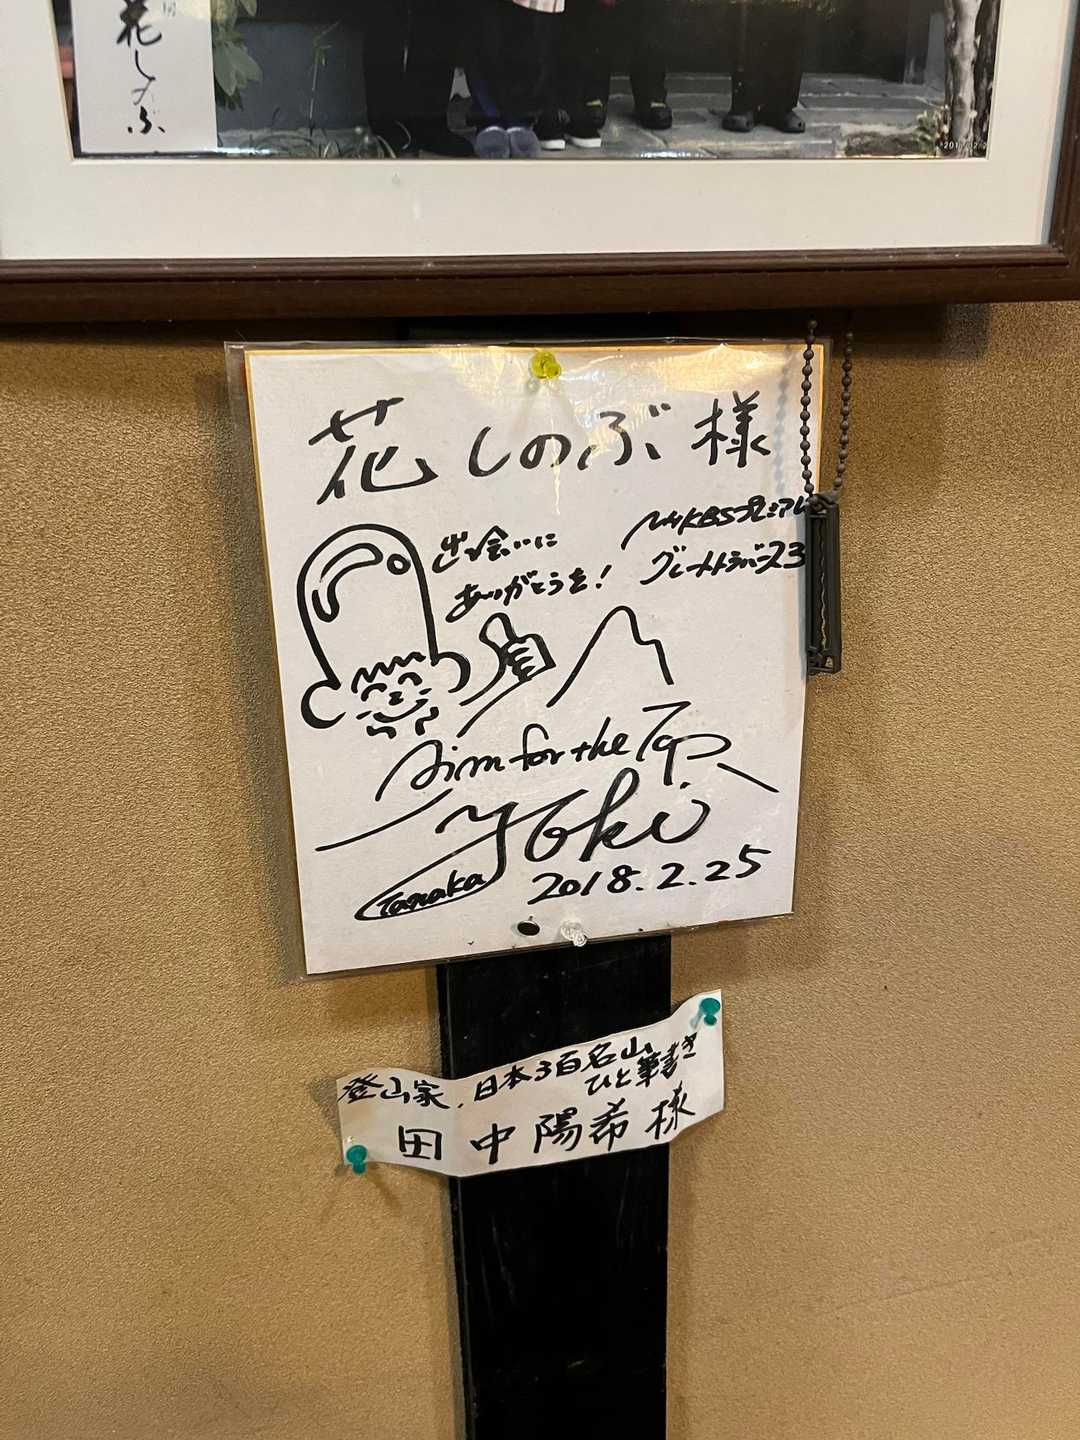 花しのぶ
花しのぶ様
NHKBSプレミアム
グレートトラバース3
出会いに
ありがとうを!
Aim for the Top
Yoki
Tanaka
2018.2.25
登山家、日本3百名山
ひと筆書き
田中陽希様